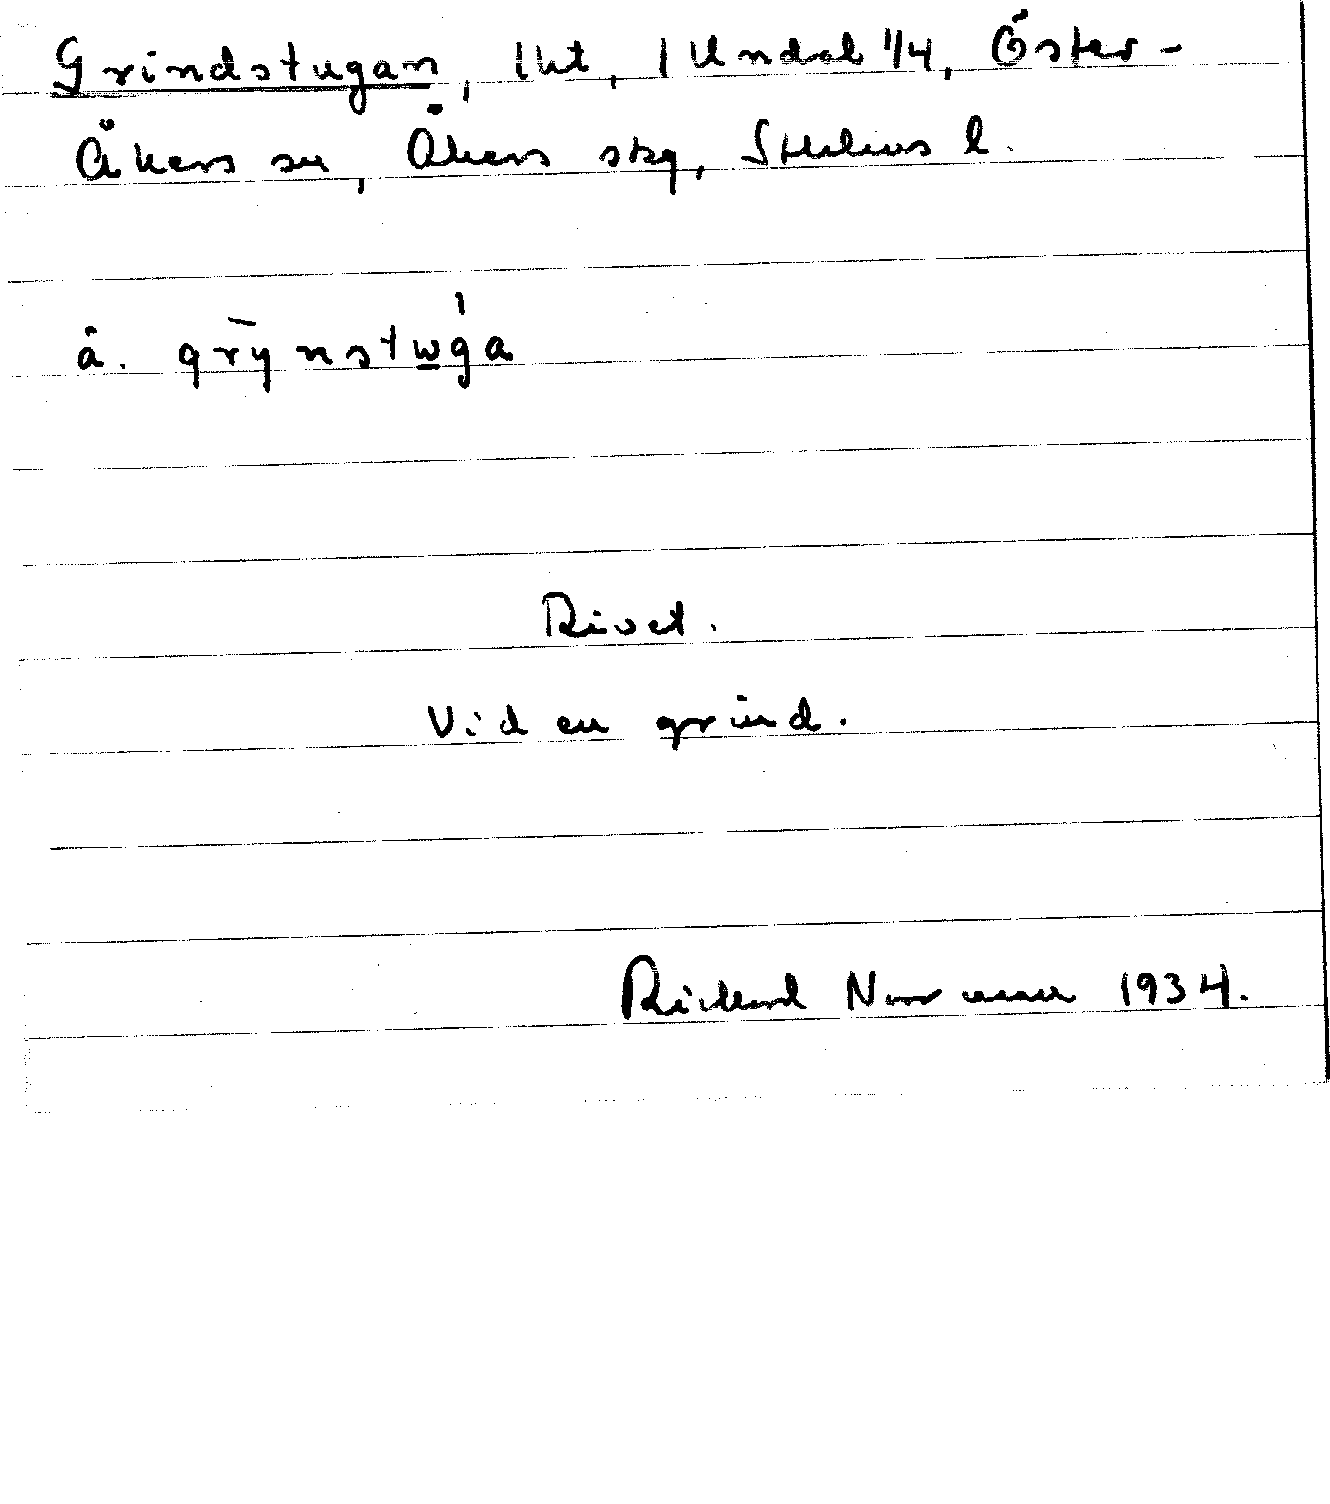 Grindstugan, lht, 1 Undal 1/4, Öster-
Åkers sn, Åkers skg, Sthlms l.
å. grynstwga
Rivet.
Vid en grind.
Rickard Norrman 1934.